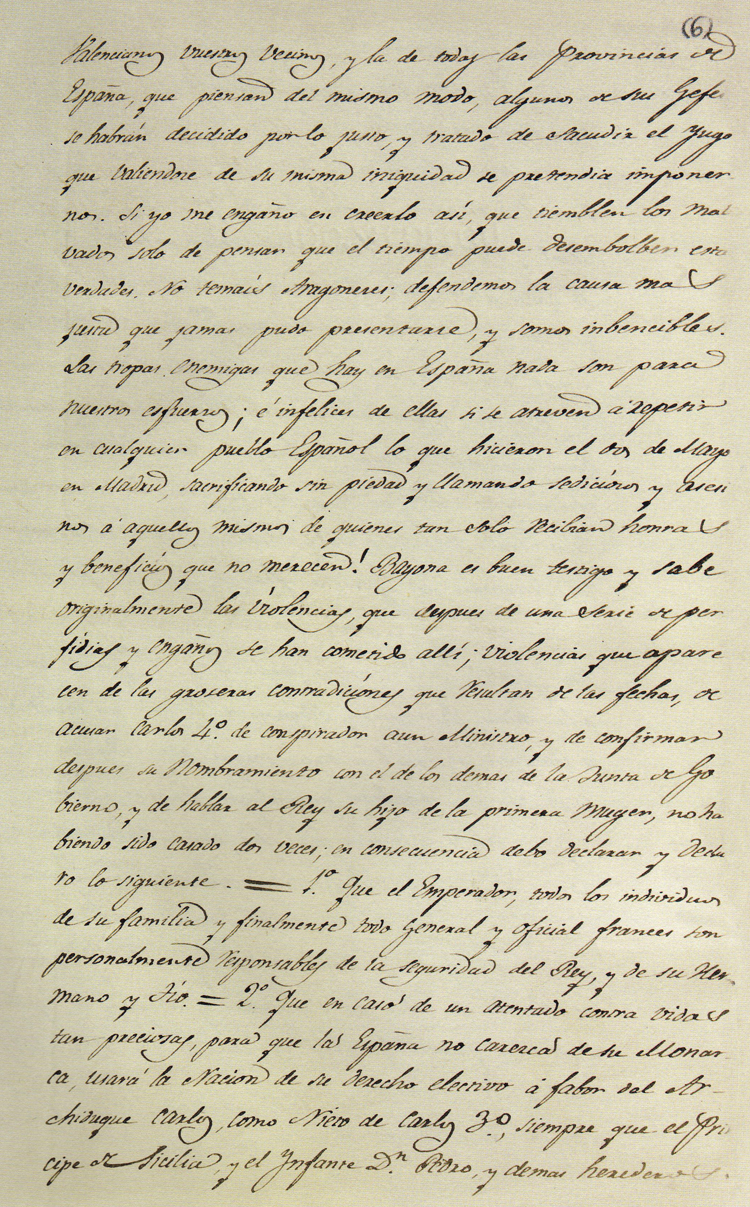 (6)
Valencianos vuestros vecinos, y la de todas las Provincias de
España, que piensan del mismo modo, algunos de sus Gefe
se habrán decidido por lo justo, y tratado de Sacudir el Yugo
que valiendose de su misma iniquidad se pretendia imponer-
nos. Si yo me engaño en creerlo así, que tiemblen los mal
vados solo de pensar que el tiempo puede desembolber esta
verdades. No temais Aragoneses; defendemos la causa mas
justa que jamas pudo presentarse, y somos inbencibles.
Las tropas enemigas que hay en España nada son para
nuestros esfuerzos; é infelices de ellas si se atreven á repetir
en cualquier pueblo Español lo que hicieron el dos de Mayo
en Madrid, sacrificando sin piedad y llamando sediciosos y asesi
nos á aquellos mismos de quienes tan solo recibian honras
y beneficios que no merecen! Bayona es buen testigo y sabe
originalmente las violencias, que despues de una serie de per
fidias y engaños se han cometido allí; violencias que apare
cen de las groseras contradiciones que resultan de las fechas, de
acusar Carlos 4.º de conspirador aun Ministro, y de confirmar
despues su Nombramiento con el de los demas de la Junta de Go
bierno, y de hablar al Rey su hijo de la primera Muger, no ha
biendo sido casado dos veces; en consecuencia debo declarar y decla
ro lo siguiente. = 1.º Que el Emperador, todos los individuos
de su familia y finalmente todo General y oficial frances son
personalmente responsables de la seguridad del Rey, y de su Her-
mano y Tio. = 2.º Que en caso de un atentado contra vidas
tan preciosas, para que la España no carezca de su Monar-
ca, usará la Nacion de su derecho electivo á fabor del Ar-
chiduque Carlos, como Nieto de Carlos 3.º, siempre que el Prin
cipe de Sicilia, y el Infante D.n Pedro, y demas herederos.